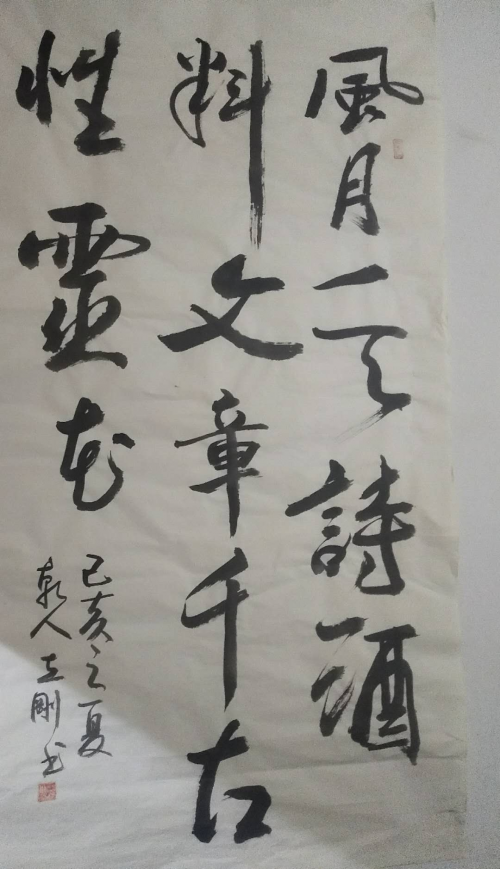 風月一天詩酒
料文章千古
性靈花
己亥之夏
乾人 剛书